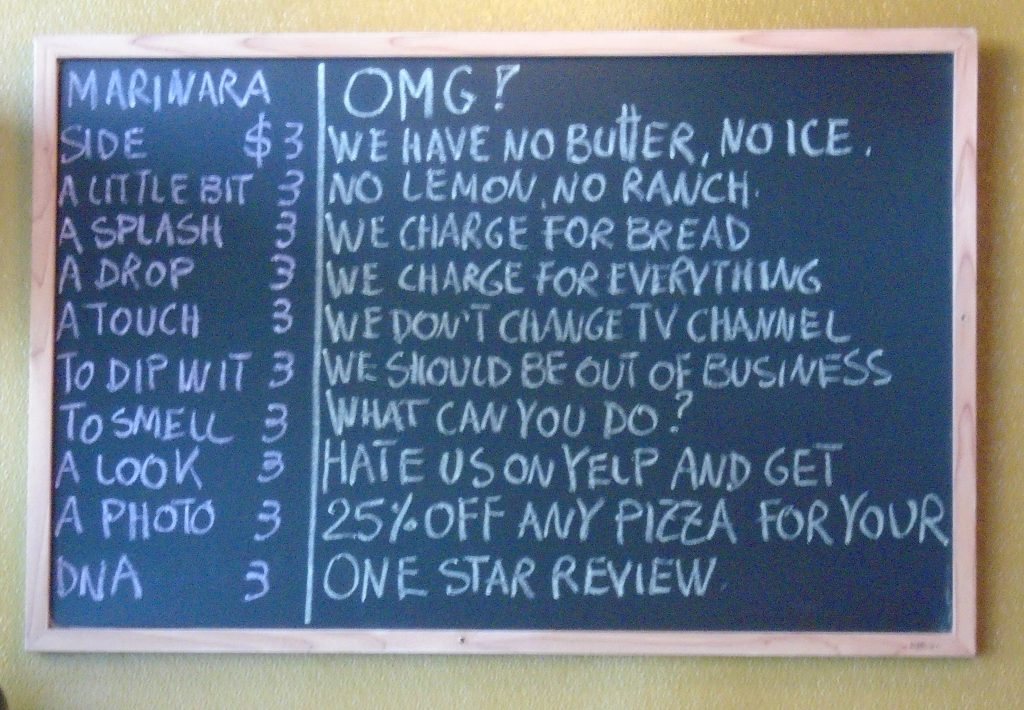 MARINARA
SIDE $3
A LITTLE BIT 3
A SPLASH 3
A DROP 3
A TOUCH 3
TO DIP WIT 3
TO SMELL 3
A LOOK 3
A PHOTO 3
DNA 3
OMG!
WE HAVE NO BUTTER, NO ICE,
NO LEMON, NO RANCH.
WE CHARGE FOR BREAD
WE CHARGE FOR EVERYTHING
WE DON'T CHANGE TV CHANNEL
WE SHOULD BE OUT OF BUSINESS
WHAT CAN YOU DO?
HATE US ON YELP AND GET
25% OFF ANY PIZZA FOR YOUR
ONE STAR REVIEW.